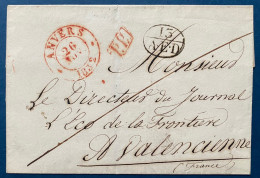 ANVERS
26
1832
P.P.
13
N.E.D
Monsieur
Le Directeur du Journal
L'Eco de la Frontière
A Valencienne
(France)